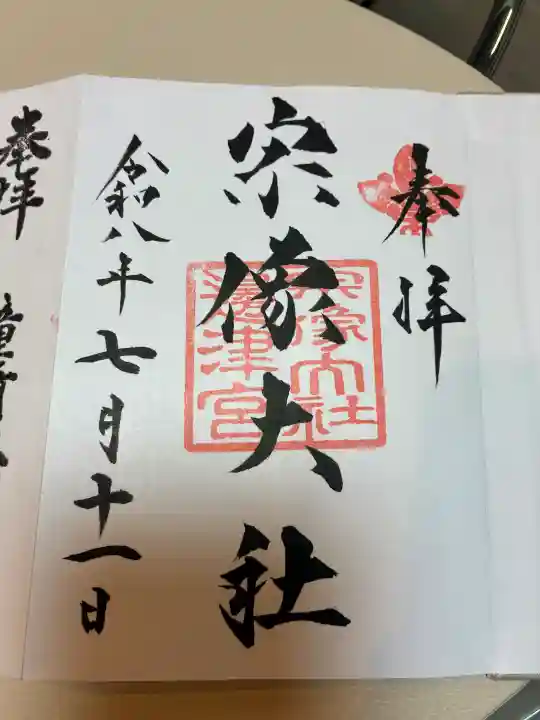 奉拝
宗像大社
宗像大社
津宮
令和八年七月十一日
奉拝